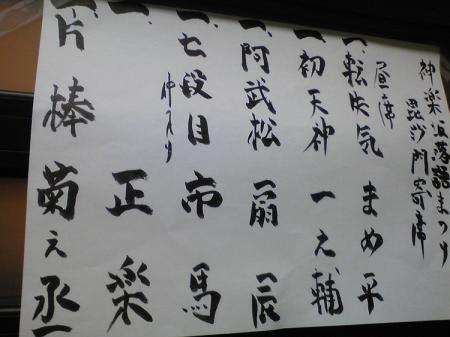 神楽坂落語まつり
毘沙門寄席
昼席
一、転失気 まめ平
一、初天神 一之輔
一、阿武松 扇辰
一、七段目 市馬
仲入り
一、 正楽
一、片棒 菊之丞